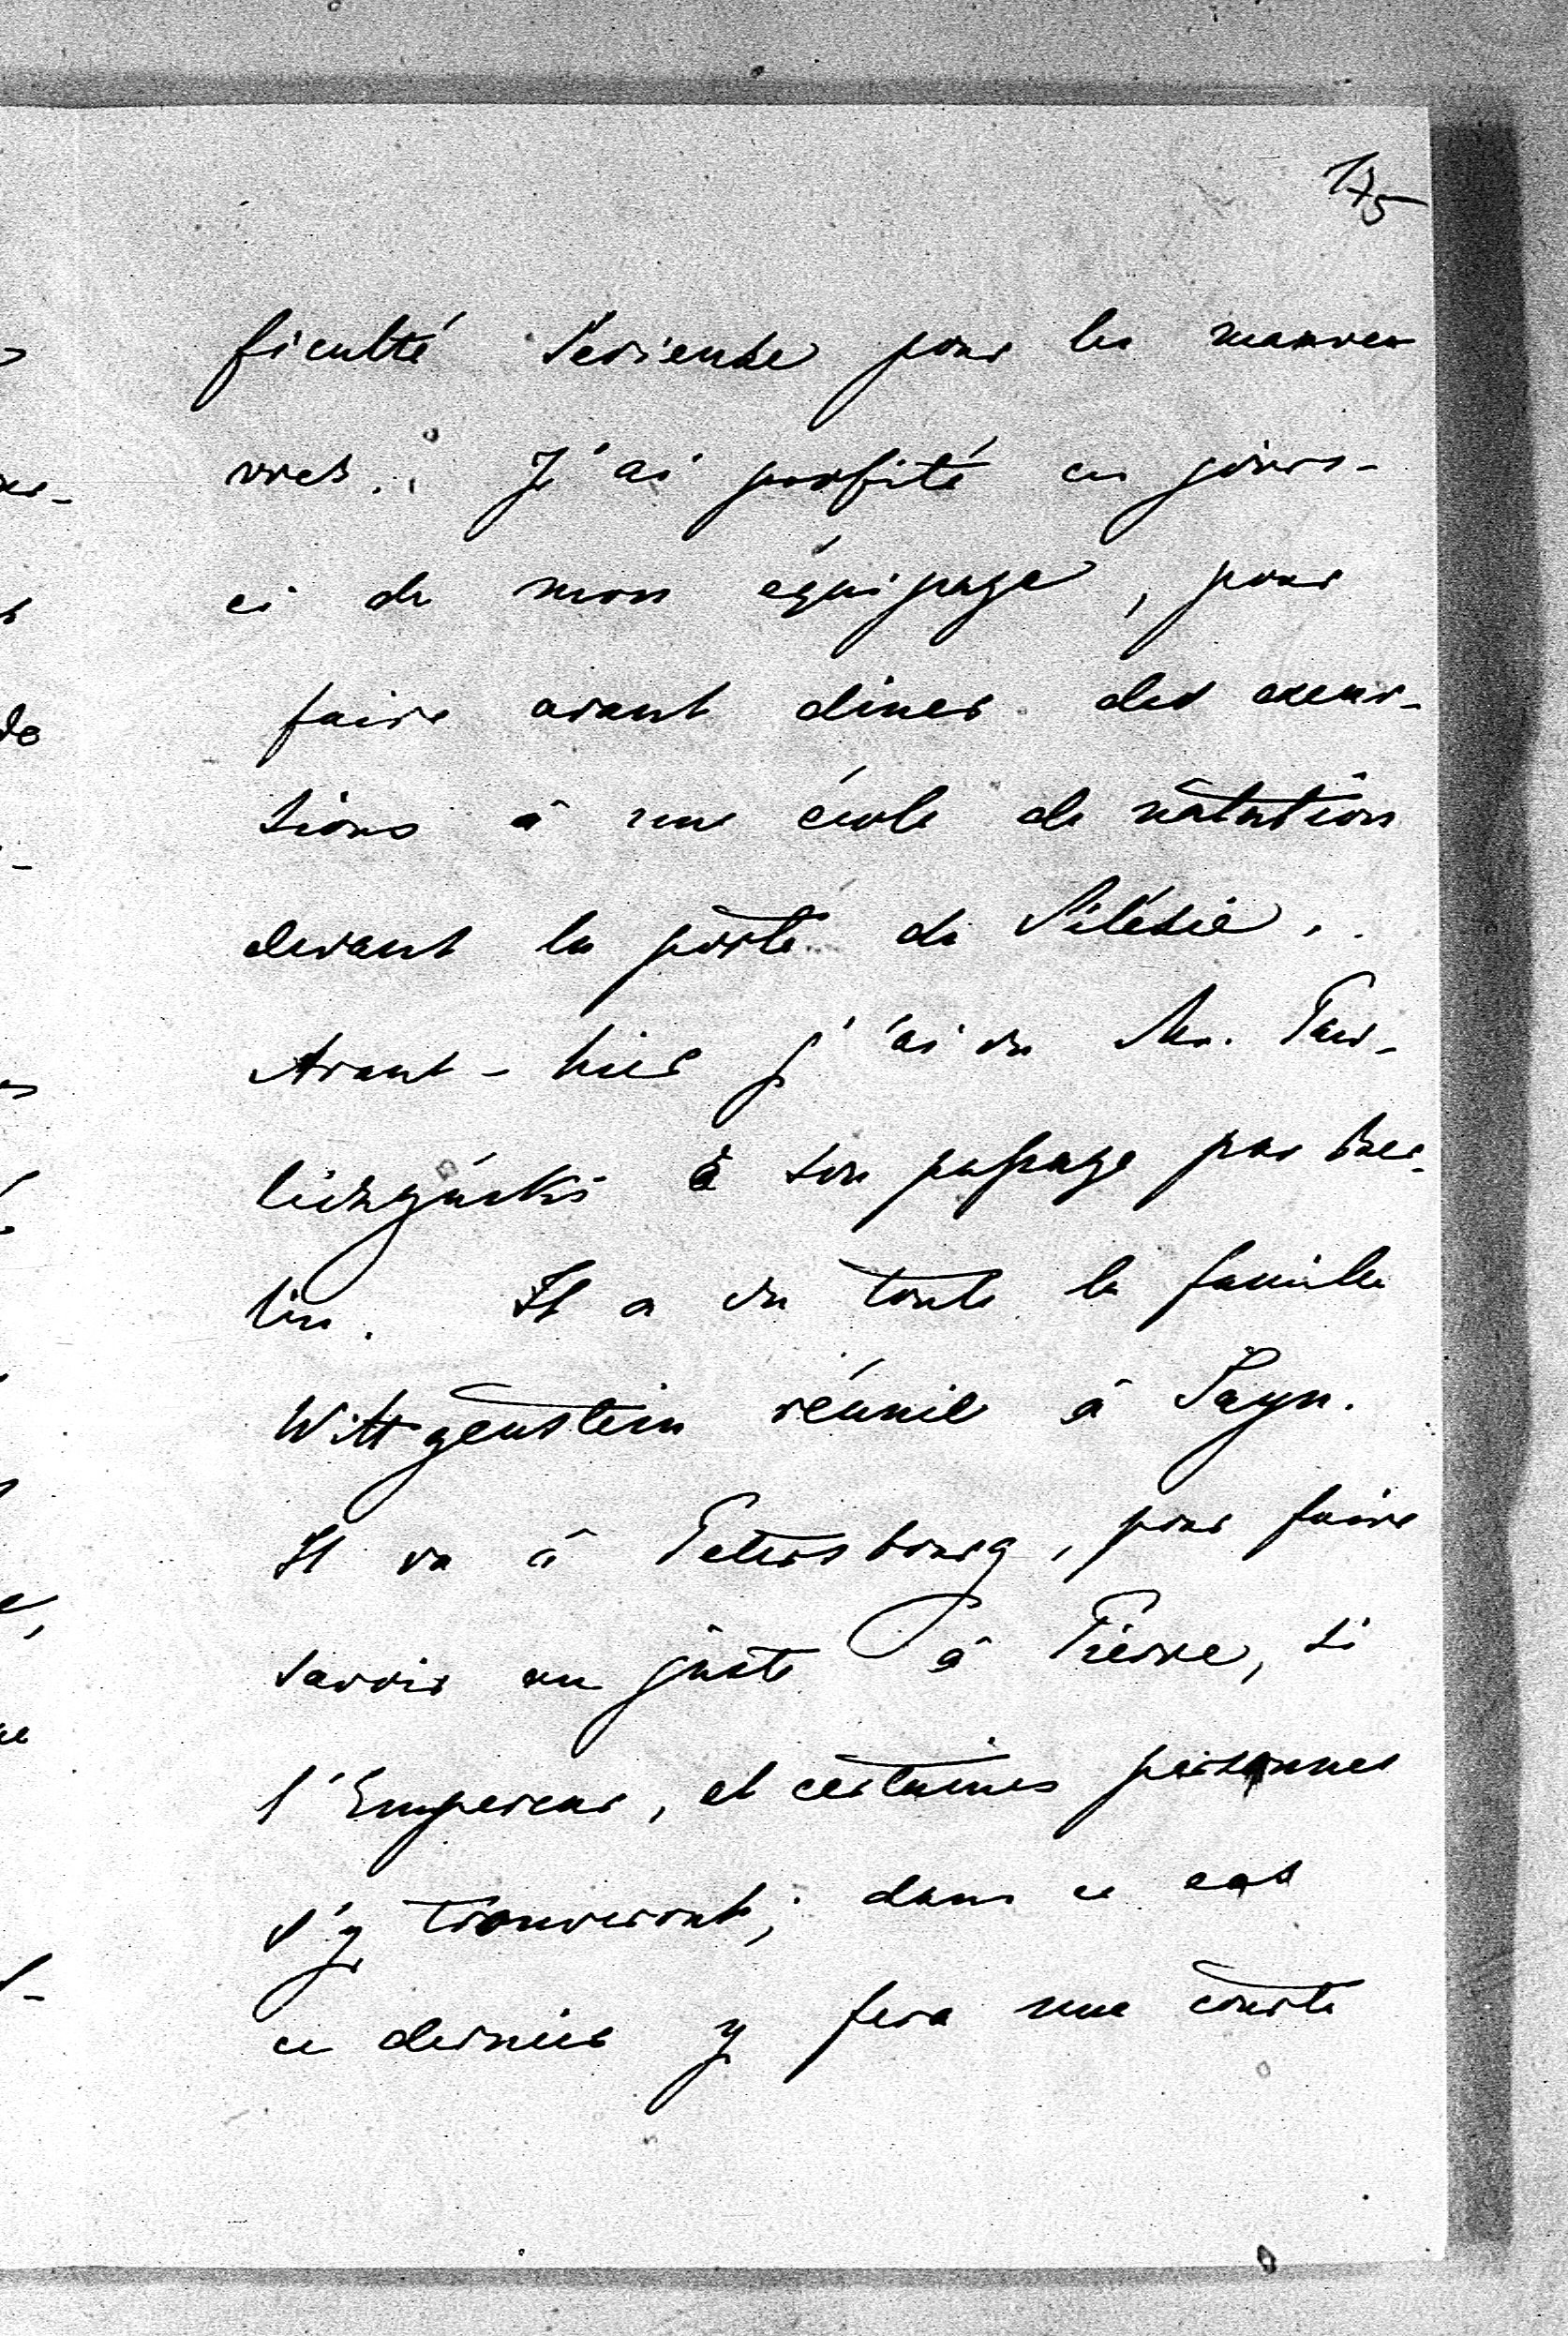 175
ficulté serieuse pour les manoeu
vres. J'ai profité ces jours-
ci de mon équipage, pour
faire avant diner des excur-
sions à une école de natation
devant la porte de Silésie.
Avant-hier j'ai vu Mr. Paw-
à son passage par Ber-
lin. Il a vu toute la famille
Wittgenstein réunie à Sayn.
Il va à Petersbourg, pour faire
savoir au juste à Pierre, si
l'Empereur, et certaines personnes
s'y trouveront; dans ce cas
ce dernier y fera une courte